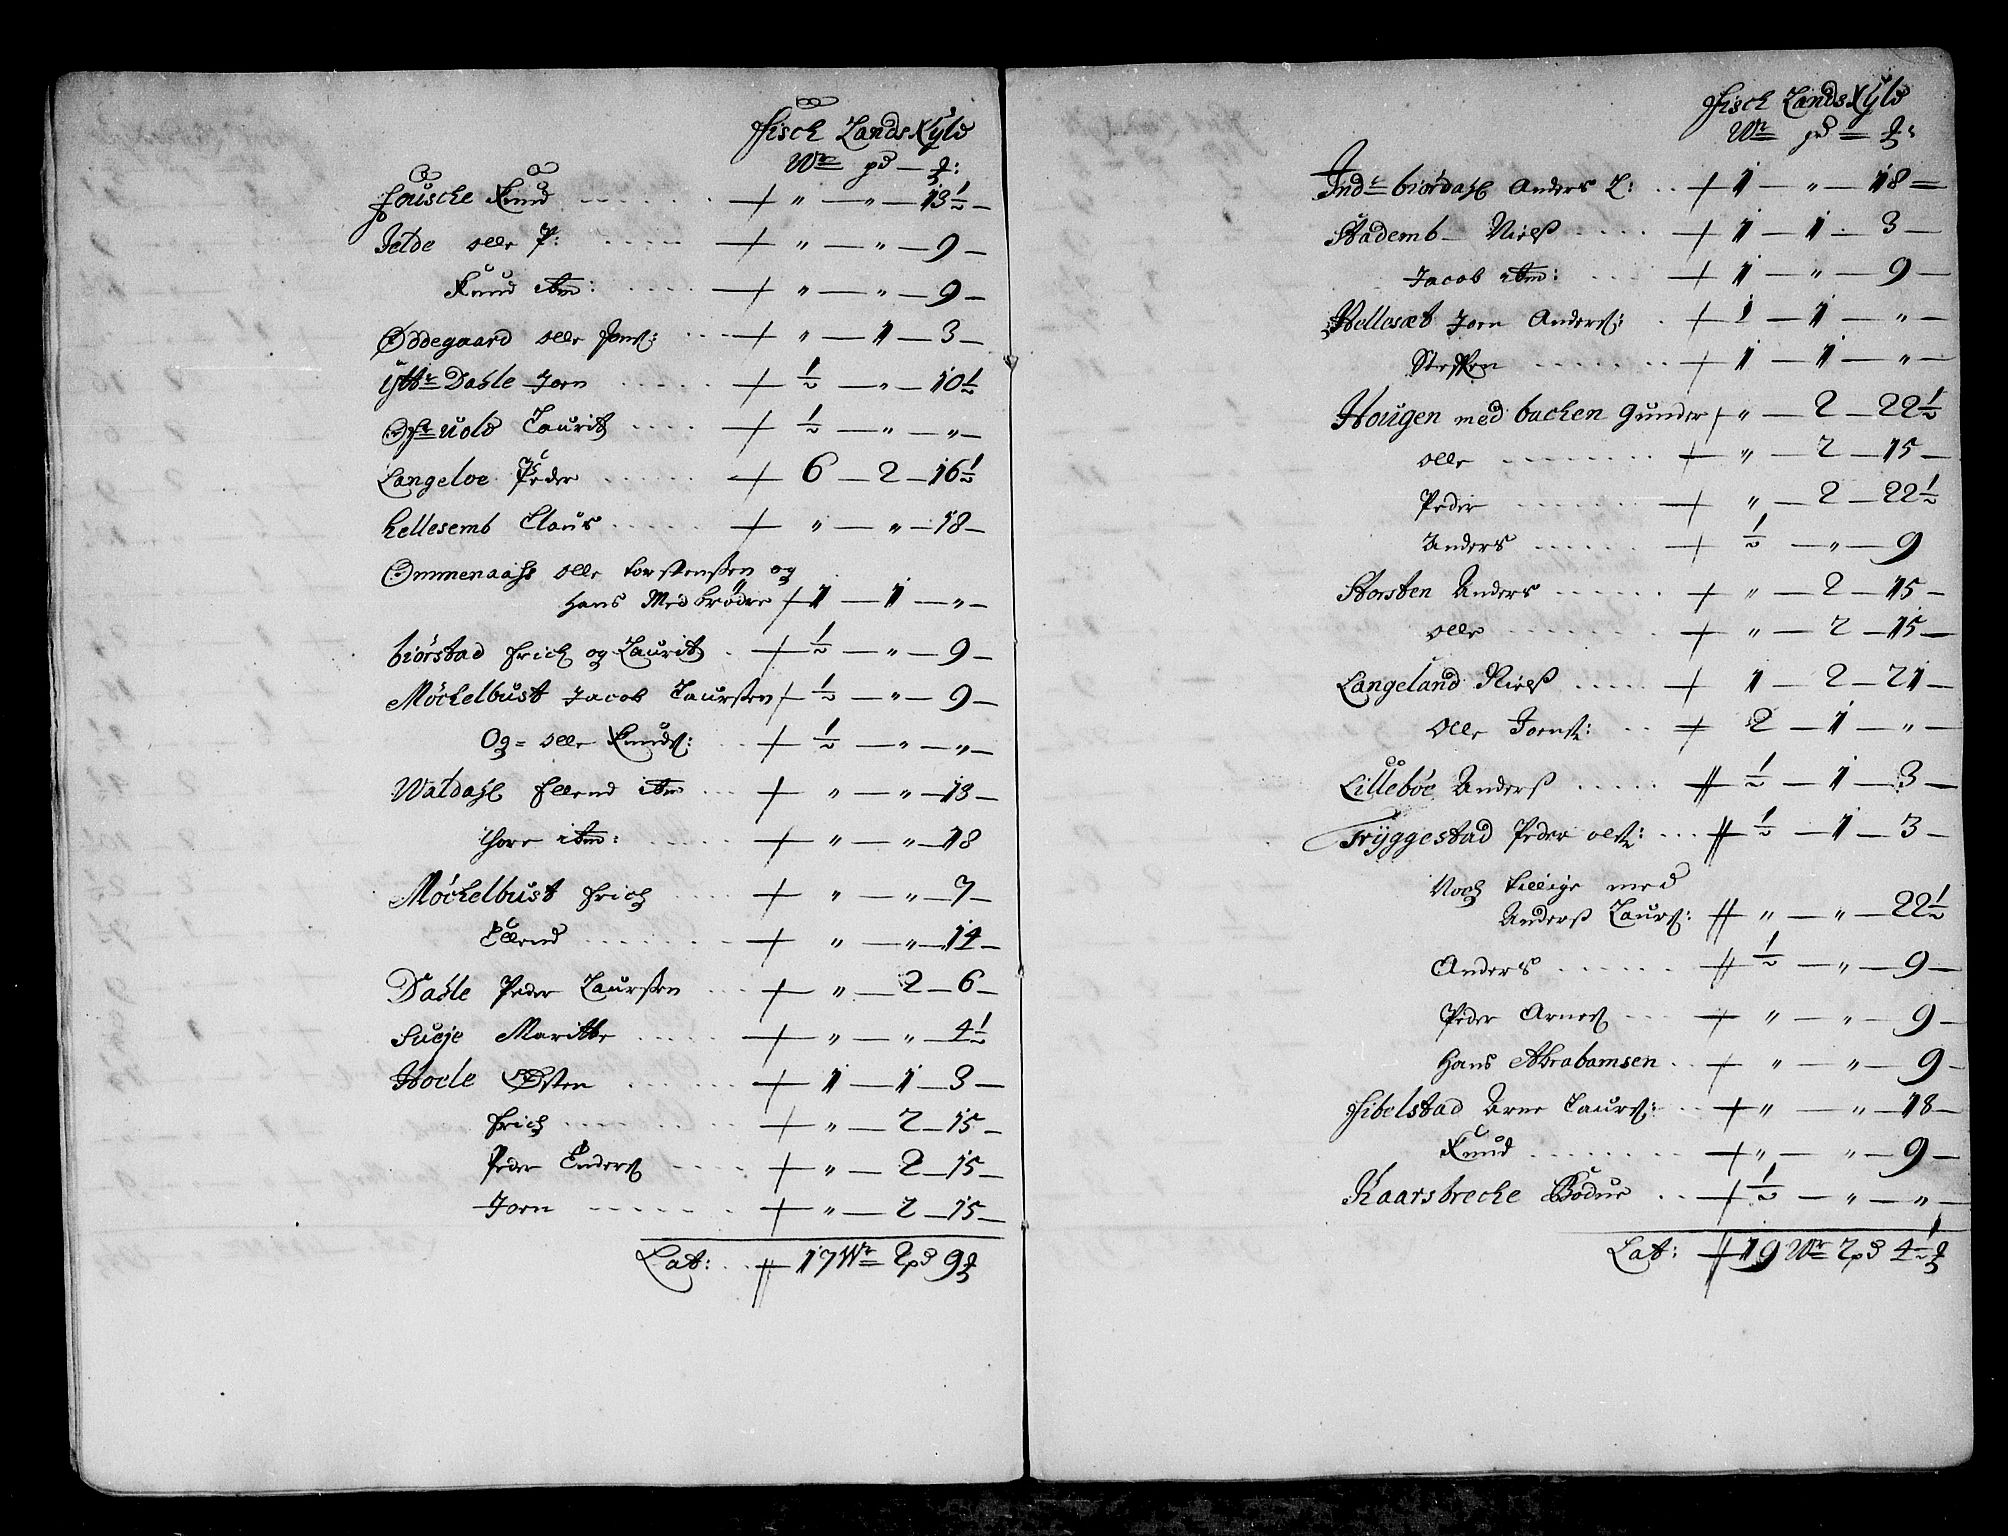 Fisch LandsKÿld
Wr pd — ℔:
Fousche Knud . . . . + " — " — 13½ —
Jelde olle P: . . . . + " — " — 9 —
Knud ibm: . . . . + " — " — 9 —
Øddegaard olle Jons: . . + " — 1 — 3 —
Ytt Dahle Jorn . . . . + ½ — " — 10½
Ofr uold Laurit . . . . + ½ — " — " —
Langeloe Peder . . . . + 6 — 2 — 16½
hellesemb Claus . . . . + " — " — 18 —
Ommenaahs olle torstensen og
Hans Med brödre + 1 — 1 — " —
biörstad Erich og Laurit . + ½ — " — 9 —
Möckelbust Jacob Laursen + ½ — " — 9 —
Og = olle Knuds: . . + ½ — " — " —
Waldahl Ellend ibm . . + " — " — 13 —
Thore ibm: . . . . + " — " — 18
Möckelbust Erich . . . . + " — " — 7 —
Ellend . . . . + " — " — 14 —
Dahle Peder Laursen . . + " — 2 — 6 —
Sueje Maritte . . . . + " — " — 4½
Hoele Østen . . . . + 1 — 1 — 3 —
Erich . . . . + " — 2 — 15 —
Peder Enders . . . . + " — 2 — 15 —
Jorn . . . . + " — 2 — 15 —
Lat: . . 17 Wr 2 pd 9 ℔
Fisch LandsKÿld
Wr pd — ℔:
Indr biördahl Anders L: . . + 1 — " — 18 —
Stademb — Niels . . . . + 1 — 1 — 3 —
Jacob ibm: . . . + 1 — " — 9 —
Hellesæt Jorn Anders: . + 1 — 1 — " —
Steffen . . . . + 1 — 1 — " —
Hougen med backen gunder + " — 2 — 22½
olle . . . . + " — 2 — 15 —
Peder . . . . + " — 2 — 22½
Anders . . . . + ½ — " — 9
Storsten Anders . . . . + " — 2 — 15 —
olle . . . . + " — 2 — 15 —
Langeland Niels . . . . + 1 — 2 — 21 —
Olle Jorns: . . + 2 — 1 — " —
Lilleböe Anders . . . . + ½ — 1 — 3 —
Trÿggestad Peder ols: . . + ½ — 1 — 3 —
Noch tillige med
Anders Laurs: + " — " — 22½
Anders . . . . + ½ — " — 9 —
Peder Arnes . . . + " — " — 9 —
Hans Abrahamsen . . + " — " — 9 —
Fibelstad Arne Laurs: . . + " — " — 18 —
Knud . . . . + " — " — 9 —
Kaarsbrecke Bodue . . + ½ — " — " —
Lat: 19 Wr 2 pd 4½ ℔